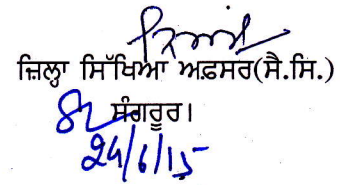 ਜ਼ਿਲ੍ਹਾ ਸਿੱਖਿਆ ਅਫ਼ਸਰ(ਸੈ.ਸਿ.)
ਸੰਗਰੂਰ।
24/6/15